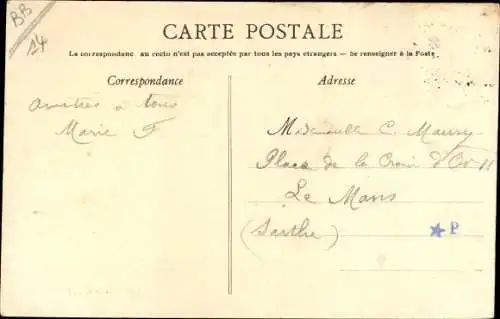 BB
14
CARTE POSTALE
La correspondanc au recto n'est pas acceptée par tous les pays étrangers — Se renseigner à la Poste
Correspondance
Adresse
Amitiés à tous
Marie F
Mademoiselle C. Maury
Place de la Croix d'Or 11
Le Mans
(Sarthe)
P